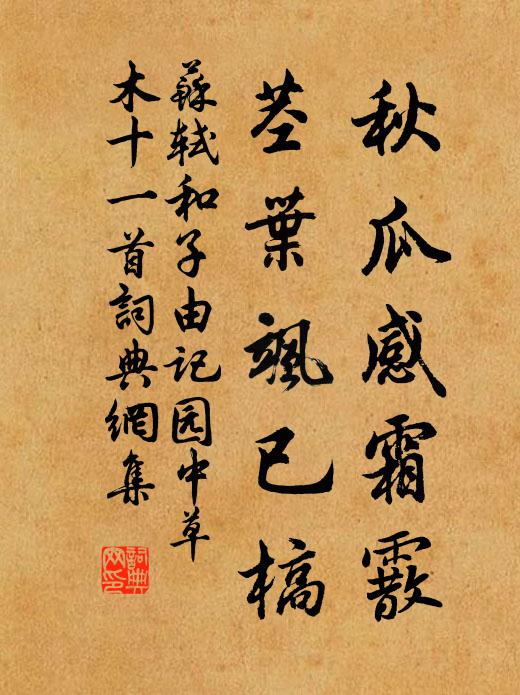 秋瓜感霜霰
茎葉颯已槁
蘇軾和子由記园中草
木十一首詞典網集
詞典
网印